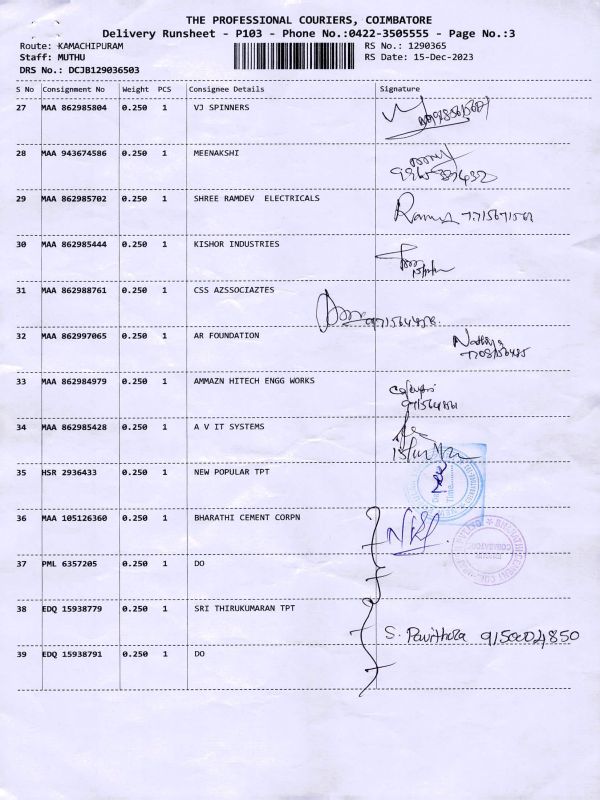 THE PROFESSIONAL COURIERS, COIMBATORE
Delivery Runsheet - P103 - Phone No.:0422-3505555 - Page No.:3
Route: KAMACHIPURAM RS No.: 1290365
Staff: MUTHU RS Date: 15-Dec-2023
DRS No.: DCJB129036503
S No Consignment No Weight PCS Consignee Details Signature
27 MAA 862985804 0.250 1 VJ SPINNERS
28 MAA 943674586 0.250 1 MEENAKSHI
29 MAA 862985702 0.250 1 SHREE RAMDEV ELECTRICALS
30 MAA 862985444 0.250 1 KISHOR INDUSTRIES
31 MAA 862988761 0.250 1 CSS AZSSOCIAZTES
32 MAA 862997065 0.250 1 AR FOUNDATION
33 MAA 862984979 0.250 1 AMMAZN HITECH ENGG WORKS
34 MAA 862985428 0.250 1 A V IT SYSTEMS
35 HSR 2936433 0.250 1 NEW POPULAR TPT
36 MAA 105126360 0.250 1 BHARATHI CEMENT CORPN
37 PML 6357205 0.250 1 DO
38 EDQ 15938779 0.250 1 SRI THIRUKUMARAN TPT
S. Pavithra 9150024850
39 EDQ 15938791 0.250 1 DO